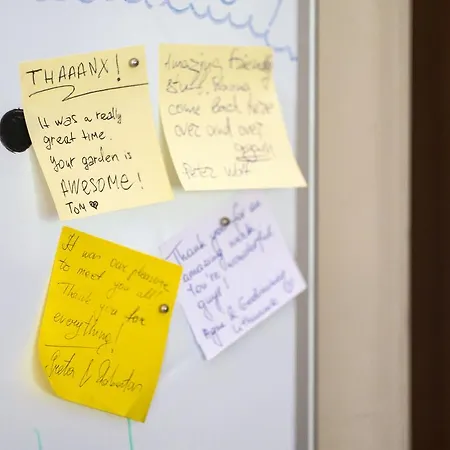 THAAANX!
It was a really
great time.
Your garden is
AWESOME!
Tom ♥
Amazing friendly
come back here
over and over
again!
Peter
It was our pleasure
to meet you all!
Thank you for
everything!
Thank you for an
amazing
You're wonderful
guys!
&
Lithuania